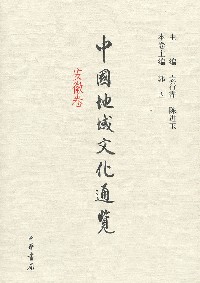 主编 袁行霈 陈进玉
本卷主编
中國地域文化通覽
安徽卷
中華書局